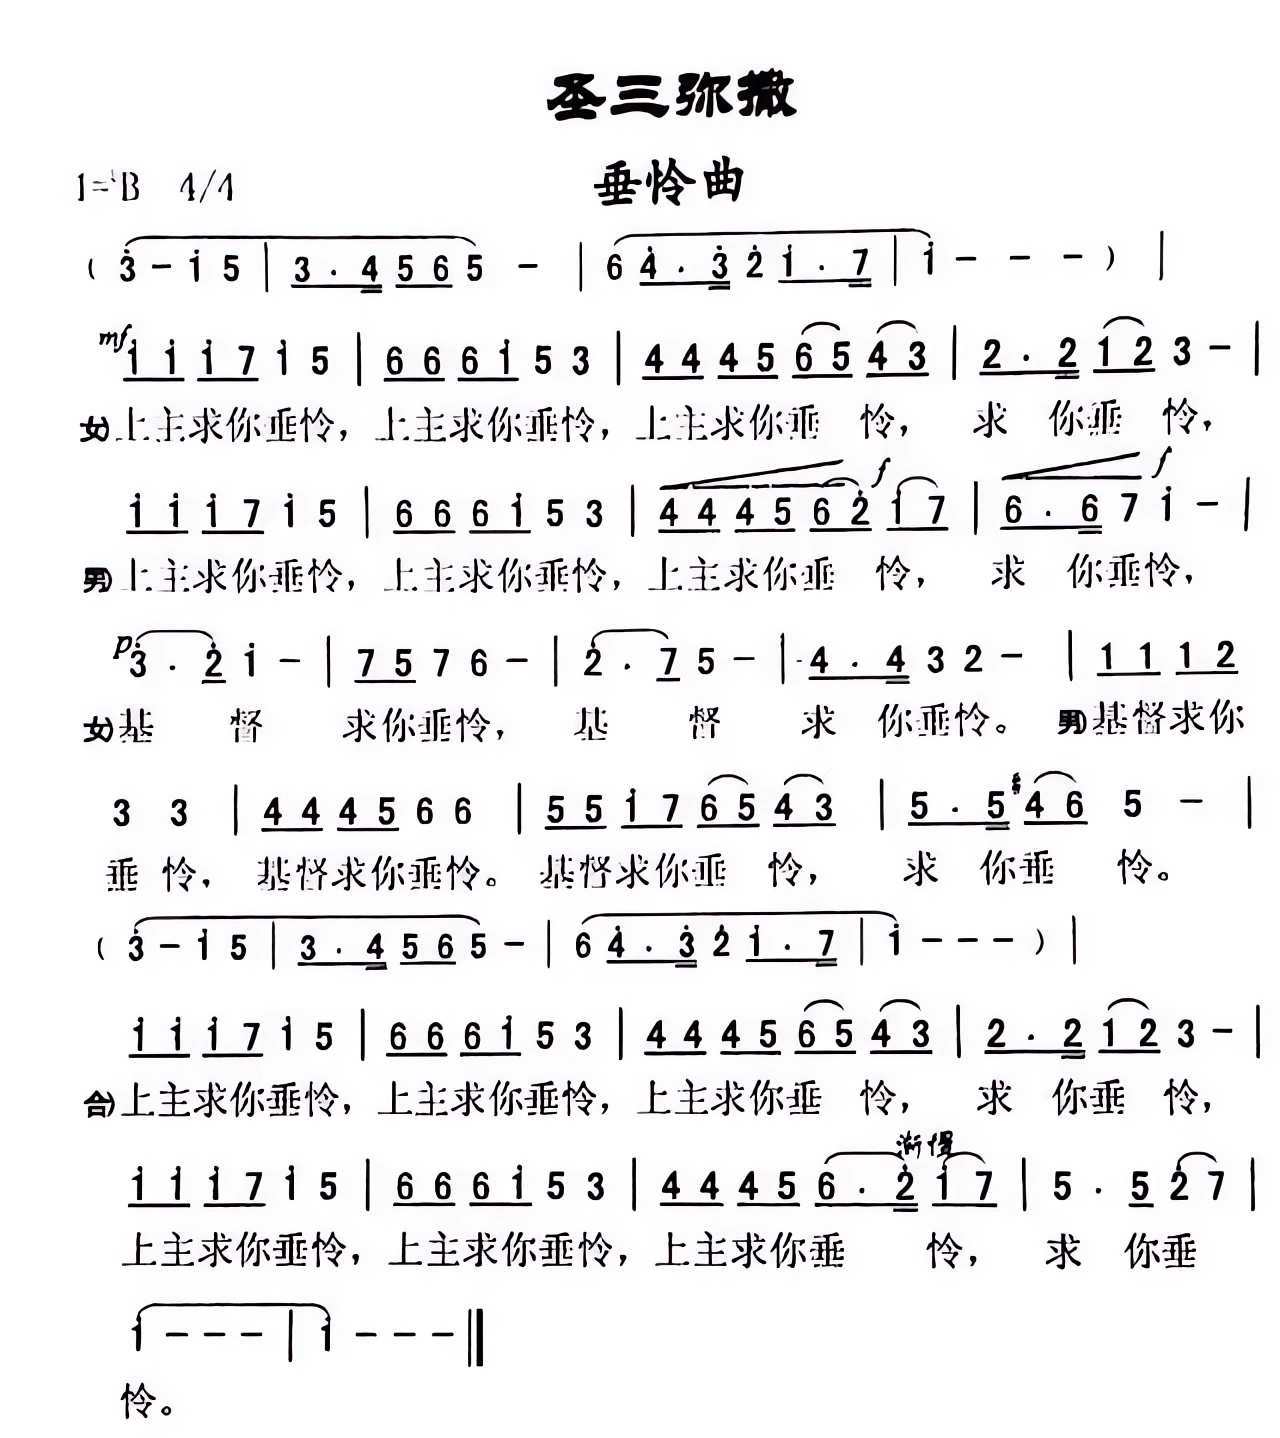 圣三弥撒
垂怜曲
1=♭B 4/4
( 3 - 1 5 | 3 . 4 5 6 5 - | 6 4 . 3 2 1 . 7 | 1 - - - ) |
mf 1 1 1 7 1 5 | 6 6 6 1 5 3 | 4 4 4 5 6 5 4 3 | 2 . 2 1 2 3 - |
女)上主求你垂怜，上主求你垂怜，上主求你垂 怜， 求 你垂 怜，
f f
1 1 1 7 1 5 | 6 6 6 1 5 3 | 4 4 4 5 6 2 1 7 | 6 . 6 7 1 - |
男)上主求你垂怜，上主求你垂怜，上主求你垂 怜， 求 你垂怜，
p 3 . 2 1 - | 7 5 7 6 - | 2 . 7 5 - | 4 . 4 3 2 - | 1 1 1 2
女)基 督 求你垂怜， 基 督 求 你垂怜。 男)基督求你
3 3 | 4 4 4 5 6 6 | 5 5 1 7 6 5 4 3 | 5 . 5 4 6 5 - |
垂 怜， 基督求你垂怜。 基督求你垂 怜， 求 你垂 怜。
( 3 - 1 5 | 3 . 4 5 6 5 - | 6 4 . 3 2 1 . 7 | 1 - - - ) |
1 1 1 7 1 5 | 6 6 6 1 5 3 | 4 4 4 5 6 5 4 3 | 2 . 2 1 2 3 - |
合)上主求你垂怜，上主求你垂怜，上主求你垂 怜， 求 你垂 怜，
渐慢
1 1 1 7 1 5 | 6 6 6 1 5 3 | 4 4 4 5 6 . 2 1 7 | 5 . 5 2 7 |
上主求你垂怜，上主求你垂怜，上主求你垂 怜， 求 你垂
1 - - - | 1 - - - ‖
怜。